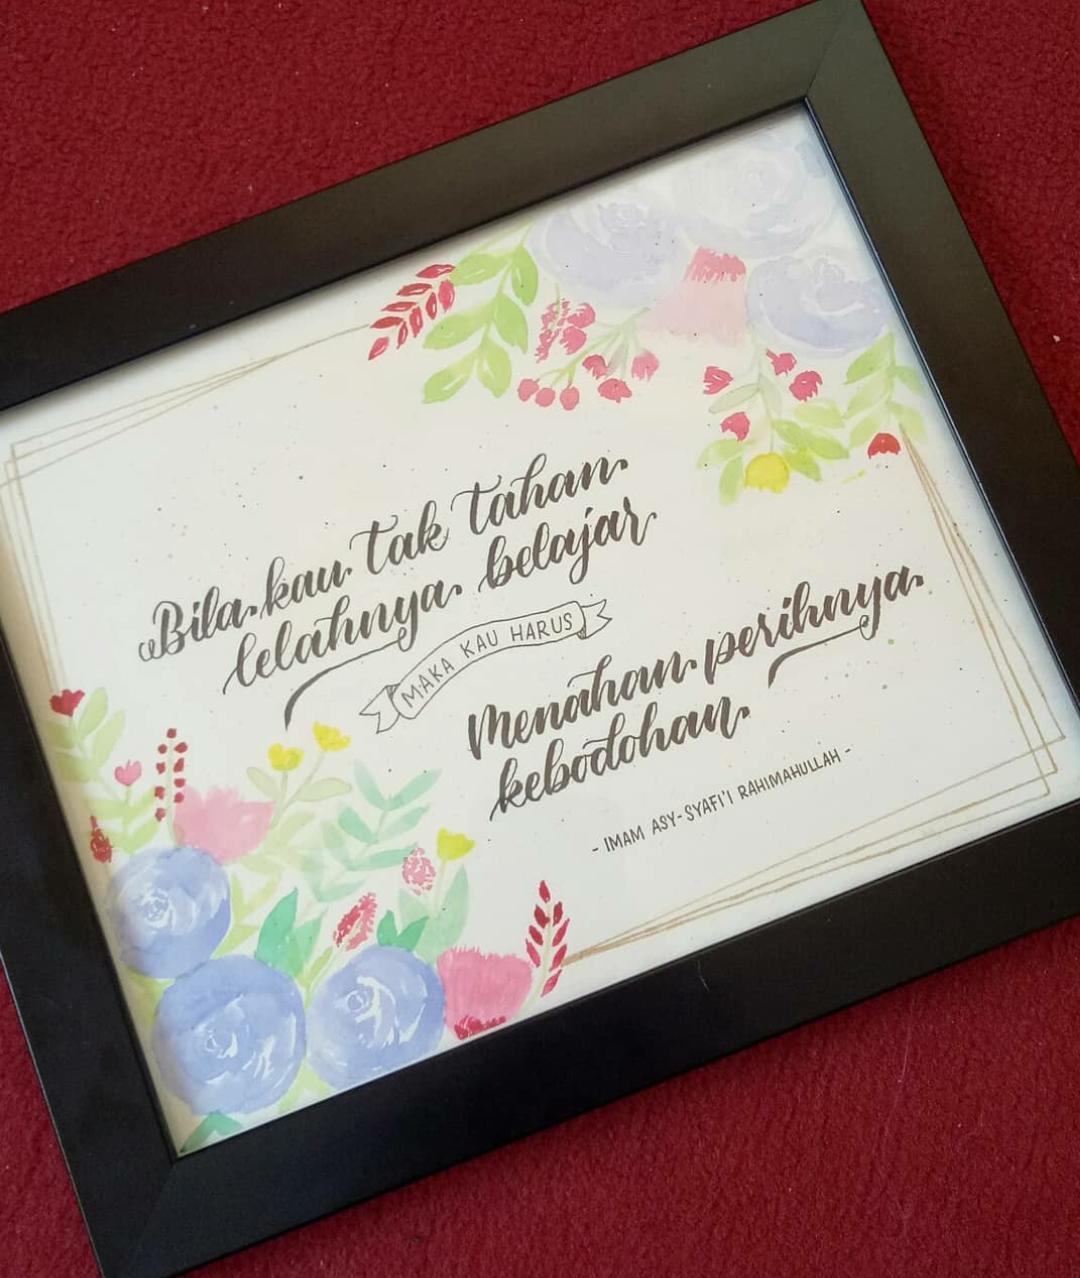 Bila kau tak tahan
lelahnya belajar
MAKA KAU HARUS
Menahan perihnya
kebodohan.
- IMAM ASY-SYAFI'I RAHIMAHULLAH -